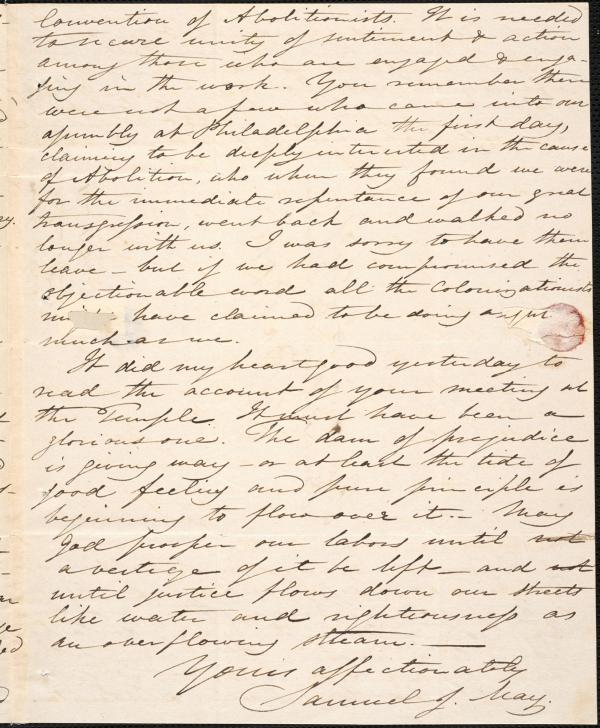 Convention of Abolitionists. It is needed
to secure unity of sentiment & action
among those who are engaged & enga-
ging in the work. You remember there
were not a few who came into our
assembly at Philadelphia the first day,
claiming to be deeply interested in the cause
of Abolition, who when they found we were
for the immediate repentance of our great
transgression, went back and walked no
longer with us. I was sorry to have them
leave – but if we had compromised the
objectionable word all the Colonizationists
have claimed to be doing as
much as we.
It did my heart good yesterday to
read the account of your meeting at
the Temple. It must have been a
glorious one. The dam of prejudice
is giving way – or at least the tide of
good feeling and pure principle is
beginning to flow over it. – May
God prosper our labors until not
a vestige of it be left – and not
until justice flows down our streets
like water and righteousness as
an overflowing stream. —
Yours affectionately
Samuel J. May.